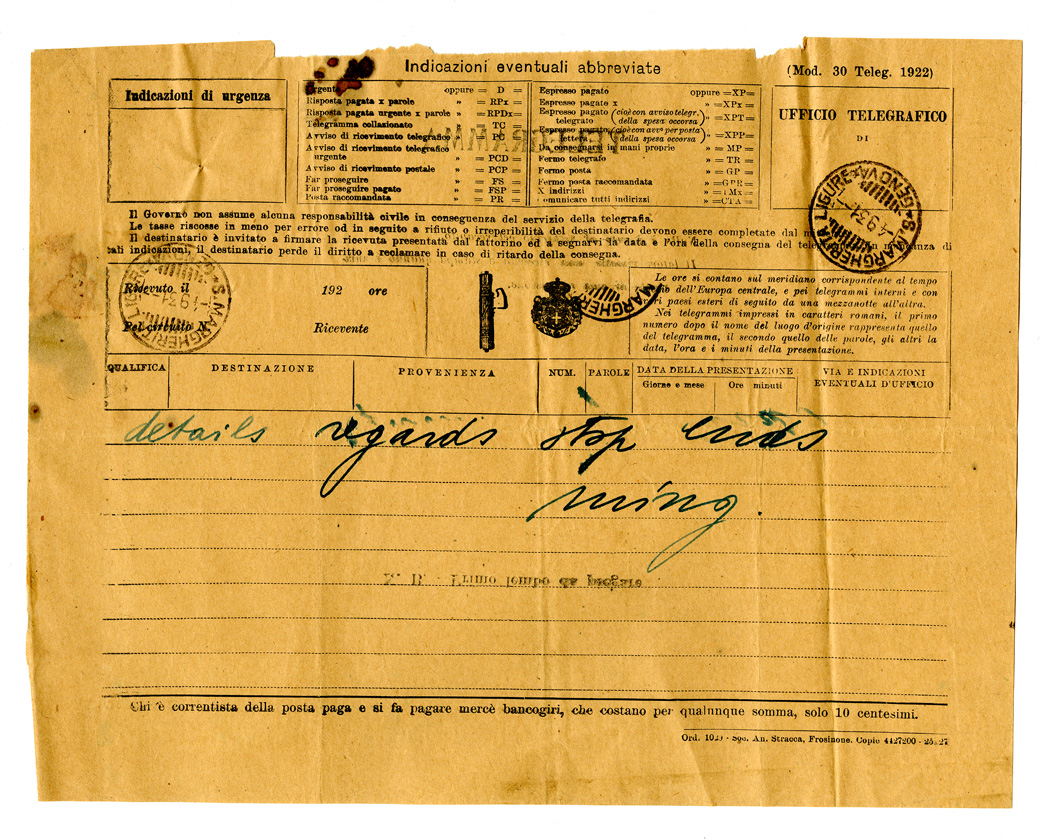 Indicazioni eventuali abbreviate
(Mod. 30 Teleg. 1922)
Indicazioni di urgenza
Urgente oppure = D =
Risposta pagata x parole » = RPx =
Risposta pagata urgente x parole » = RPDx =
Telegramma collazionato » = TC =
Avviso di ricevimento telegrafico » = PC =
Avviso di ricevimento telegrafico urgente » = PCD =
Avviso di ricevimento postale » = PCP =
Far proseguire » = FS =
Far proseguire pagato » = FSP =
Posta raccomandata » = PR =
Espresso pagato oppure =XP=
Espresso pagato x » =XPx=
Espresso pagato telegrafo (cioè con avviso telegr. della spesa occorsa) » =XPT=
Espresso pagato lettera (cioè con avvº per posta della spesa occorsa) » =XPP=
Da consegnarsi in mani proprie » = MP =
Fermo telegrafo » = TR =
Fermo posta » = GP =
Fermo posta raccomandata » =GPR=
X indirizzi » =TMx=
Comunicare tutti indirizzi » =CTA=
UFFICIO TELEGRAFICO
DI
S. MARGHERITA LIGURE
GENOVA
Il Governo non assume alcuna responsabilità civile in conseguenza del servizio della telegrafia.
Le tasse riscosse in meno per errore od in seguito a rifiuto o irreperibilità del destinatario devono essere completate dal
Il destinatario è invitato a firmare la ricevuta presentata dal fattorino ed a segnarvi la data e l'ora della consegna del
tali indicazioni, il destinatario perde il diritto a reclamare in caso di ritardo della consegna.
Ricevuto il 192 ore
Pel circuito N. Ricevente
Le ore si contano sul meridiano corrispondente al tempo
dell'Europa centrale, e pei telegrammi interni e con
paesi esteri di seguito da una mezzanotte all'altra.
Nei telegrammi impressi in caratteri romani, il primo
numero dopo il nome del luogo d'origine rappresenta quello
del telegramma, il secondo quello delle parole, gli altri la
data, l'ora e i minuti della presentazione.
QUALIFICA DESTINAZIONE PROVENIENZA NUM. PAROLE DATA DELLA PRESENTAZIONE VIA E INDICAZIONI EVENTUALI D'UFFICIO
Giorno e mese Ore minuti
details regards stop ends
ming.
Chi è correntista della posta paga e si fa pagare mercè bancogiri, che costano per qualunque somma, solo 10 centesimi.
An. Stracca, Frosinone. Copie 4427200